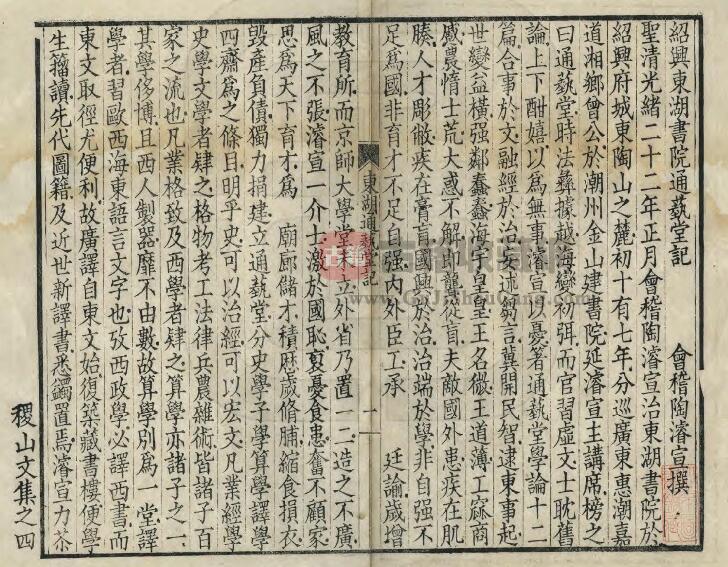 紹興東湖書院通蓺堂記
會稽陶濬宣撰
聖清光緒二十二年正月會稽陶濬宣治東湖書院於
紹興府城東陶山之麓初十有七年分巡廣東惠潮嘉
道湘鄉曾公於潮州金山建書院延濬宣主講席榜之
曰通蓺堂時法彝據越海孌初弭而官習虛文士耽舊
論上下酣嬉以為無事濬宣以憂著通蓺堂學論十二
篇合事於文融經於治妄述芻言冀開民智逮東事起
世孌益橫强鄰蠢蠢海宇皇皇王名微王道薄工窳商
慼農惰士荒大惑不解即聾從盲夫敵國外患疾在肌
腠人才彫敝疾在膏肓國興於治治端於學非自强不
足為國非育才不足自强內外臣工承
廷諭歲增
教育所而京師大學堂未立外省乃置一二造之不廣
風之不張濬宣一介士激於國恥
憂食患奮不顧家
思為天下育才為
廟廊儲才積歷歲脩脯縮食損衣
毀產負債獨力捐建立通蓺堂分史學子學算學譯學
四齋為之條目明乎史可以治經可以宏文凡業經學
史學文學者肄之格物考工法律兵農雜術皆諸子百
家之流也凡業格致及西學者肄之算學亦諸子之一
其學侈博且西人製器靡不由數故算學別為一堂譯
學者習歐西海東語言文字也攷西政學必譯西書而
東文取徑尤便利故廣譯自東文始復築藏書樓便學
生籀讀先代圖籍及近世新譯書悉蠲置焉濬宣力苶
東湖通蓺堂記
一
稷山文集之四
古籍收藏網
www.GuJiShouCang.com